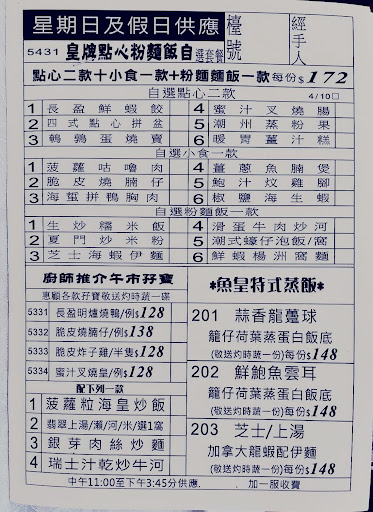 星期日及假日供應
臺號
經手人
5431 皇牌點心粉麵飯自選套餐
點心二款十小食一款+粉麵麵飯一款 每份$172
自選點心二款 4/10□
1 長盈鮮蝦餃 4 蜜汁叉燒腸
2 四式點心拼盆 5 潮州蒸粉果
3 鵪鶉蛋燒賣 6 暖胃薑汁糕
自選小食一款
1 菠蘿咕嚕肉 4 薑蔥魚腩煲
2 脆皮燒腩仔 5 鮑汁炆雞腳
3 海蜇拼鴨胸肉 6 椒鹽海生蝦
自選粉麵飯一款
1 生炒糯米飯 4 滑蛋牛肉炒河
2 夏門炒米粉 5 潮式蠔仔泡飯/窩
3 芝士海蝦伊麵 6 鮮蝦楊洲窩麵
廚師推介午市孖寶
惠顧各款孖寶敬送灼時蔬一碟
5331 長盈明爐燒鴨/例$128
5332 脆皮燒腩仔/例$138
5333 脆皮炸子雞/半隻$128
5334 蜜汁叉燒皇/例$128
配下列一款
1 菠蘿粒海皇炒飯
2 翡翠上湯/瀨/河/米/選1窩
3 銀芽肉絲炒麵
4 瑞士汁乾炒牛河
*魚皇特式蒸飯*
201 蒜香龍躉球
籠仔荷葉蒸蛋白飯底
(敬送灼時蔬一份)每份$148
202 鮮鮑魚雲耳
籠仔荷葉蒸蛋白飯底
(敬送灼時蔬一份)每份$148
203 芝士/上湯
加拿大龍蝦配伊麵
(敬送灼時蔬一份)每份$148
中午11:00至下午3:45分供應. 加一服收費